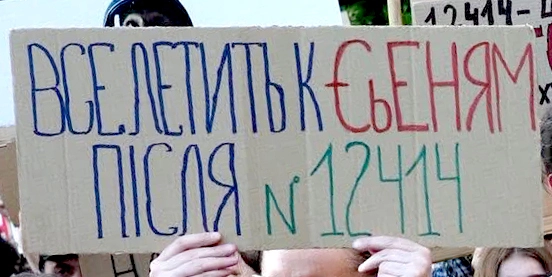 12414-
ВСЕ ЛЕТИТЬ К ЄЬЕНЯМ
ПІСЛЯ №12414